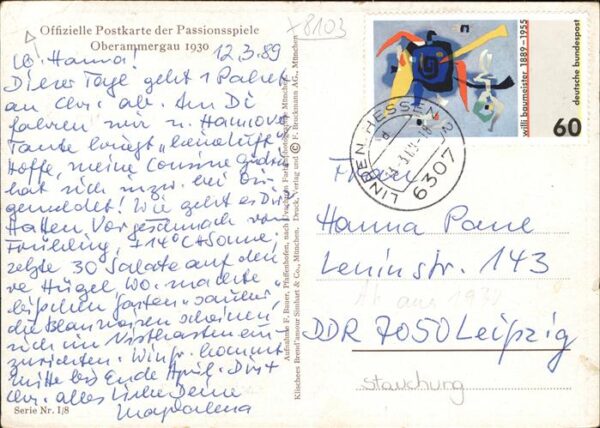 Offizielle Postkarte der Passionsspiele
Oberammergau 1930
x8103
Lb. Hanna! 12.3.89
Diese Tage geht 1 Paket
an Chr. ab. Am Di
fahren wir n. Hannover
Tante kriegt "Leineluft"
Hoffe, meine Cousine
hat sich inzw. bei Dir
gemeldet! Wie geht es Dir
Hatten Vorgeschmack vom
Frühling, +14°C + Sonne,
setzte 30 Salate auf den
Hügel Wo. machte
"bißchen Garten" sauber,
die Blaumeisen scheinen
sich im Nistkasten ein-
zurichten. Winfr. kommt
Mitte bis Ende April. Dir +
Chr. alles Liebe Deine
Magdalena
Serie Nr. I/8
Aufnahme F. Bauer, Pfaffenhofen, nach Farbenphotographie München
Klischees Brend'amour Simhart & Co., München. Druck, Verlag und © F. Bruckmann AG., München
willi baumeister 1889-1955
deutsche bundespost
60
LINDEN, HESSEN 2
6307
Frau
Hanna Paul
Leninstr. 143
Ab aus 1930
DDR 7050 Leipzig
Stauchung